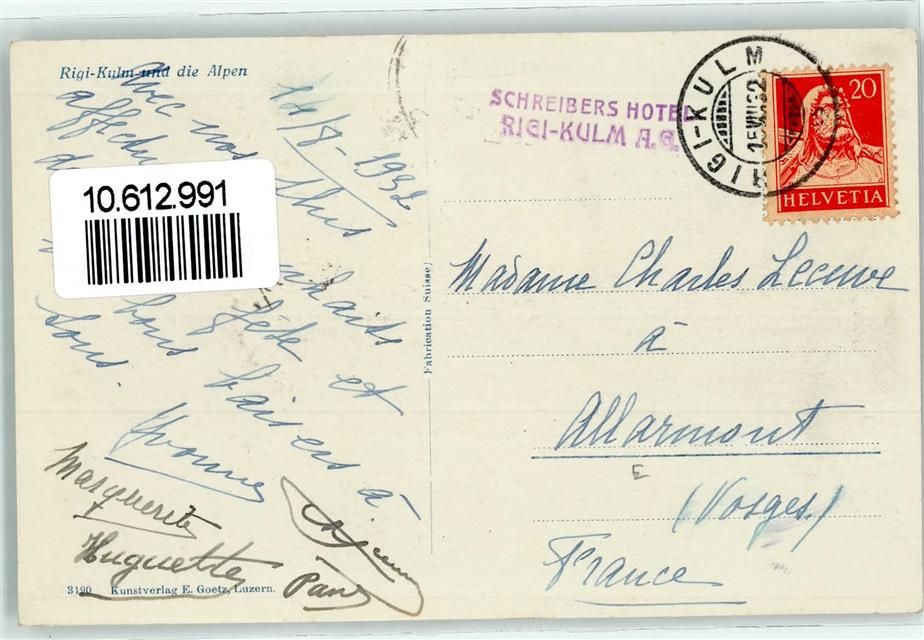 Rigi-Kulm und die Alpen
14/8-1932
Avec nos
affectu
souhaits
fête et
bons baisers à
tous.
Yvonne
Marguerite
Huguette
3190 Kunstverlag E. Goetz, Luzern.
10.612.991
Fabrication Suisse)
SCHREIBERS HOTEL
RIGI-KULM A.G.
RIGI-KULM
RIGI
15.VIII.32
20
HELVETIA
Madame Charles Lecuve
à
Allarmont
(Vosges)
France